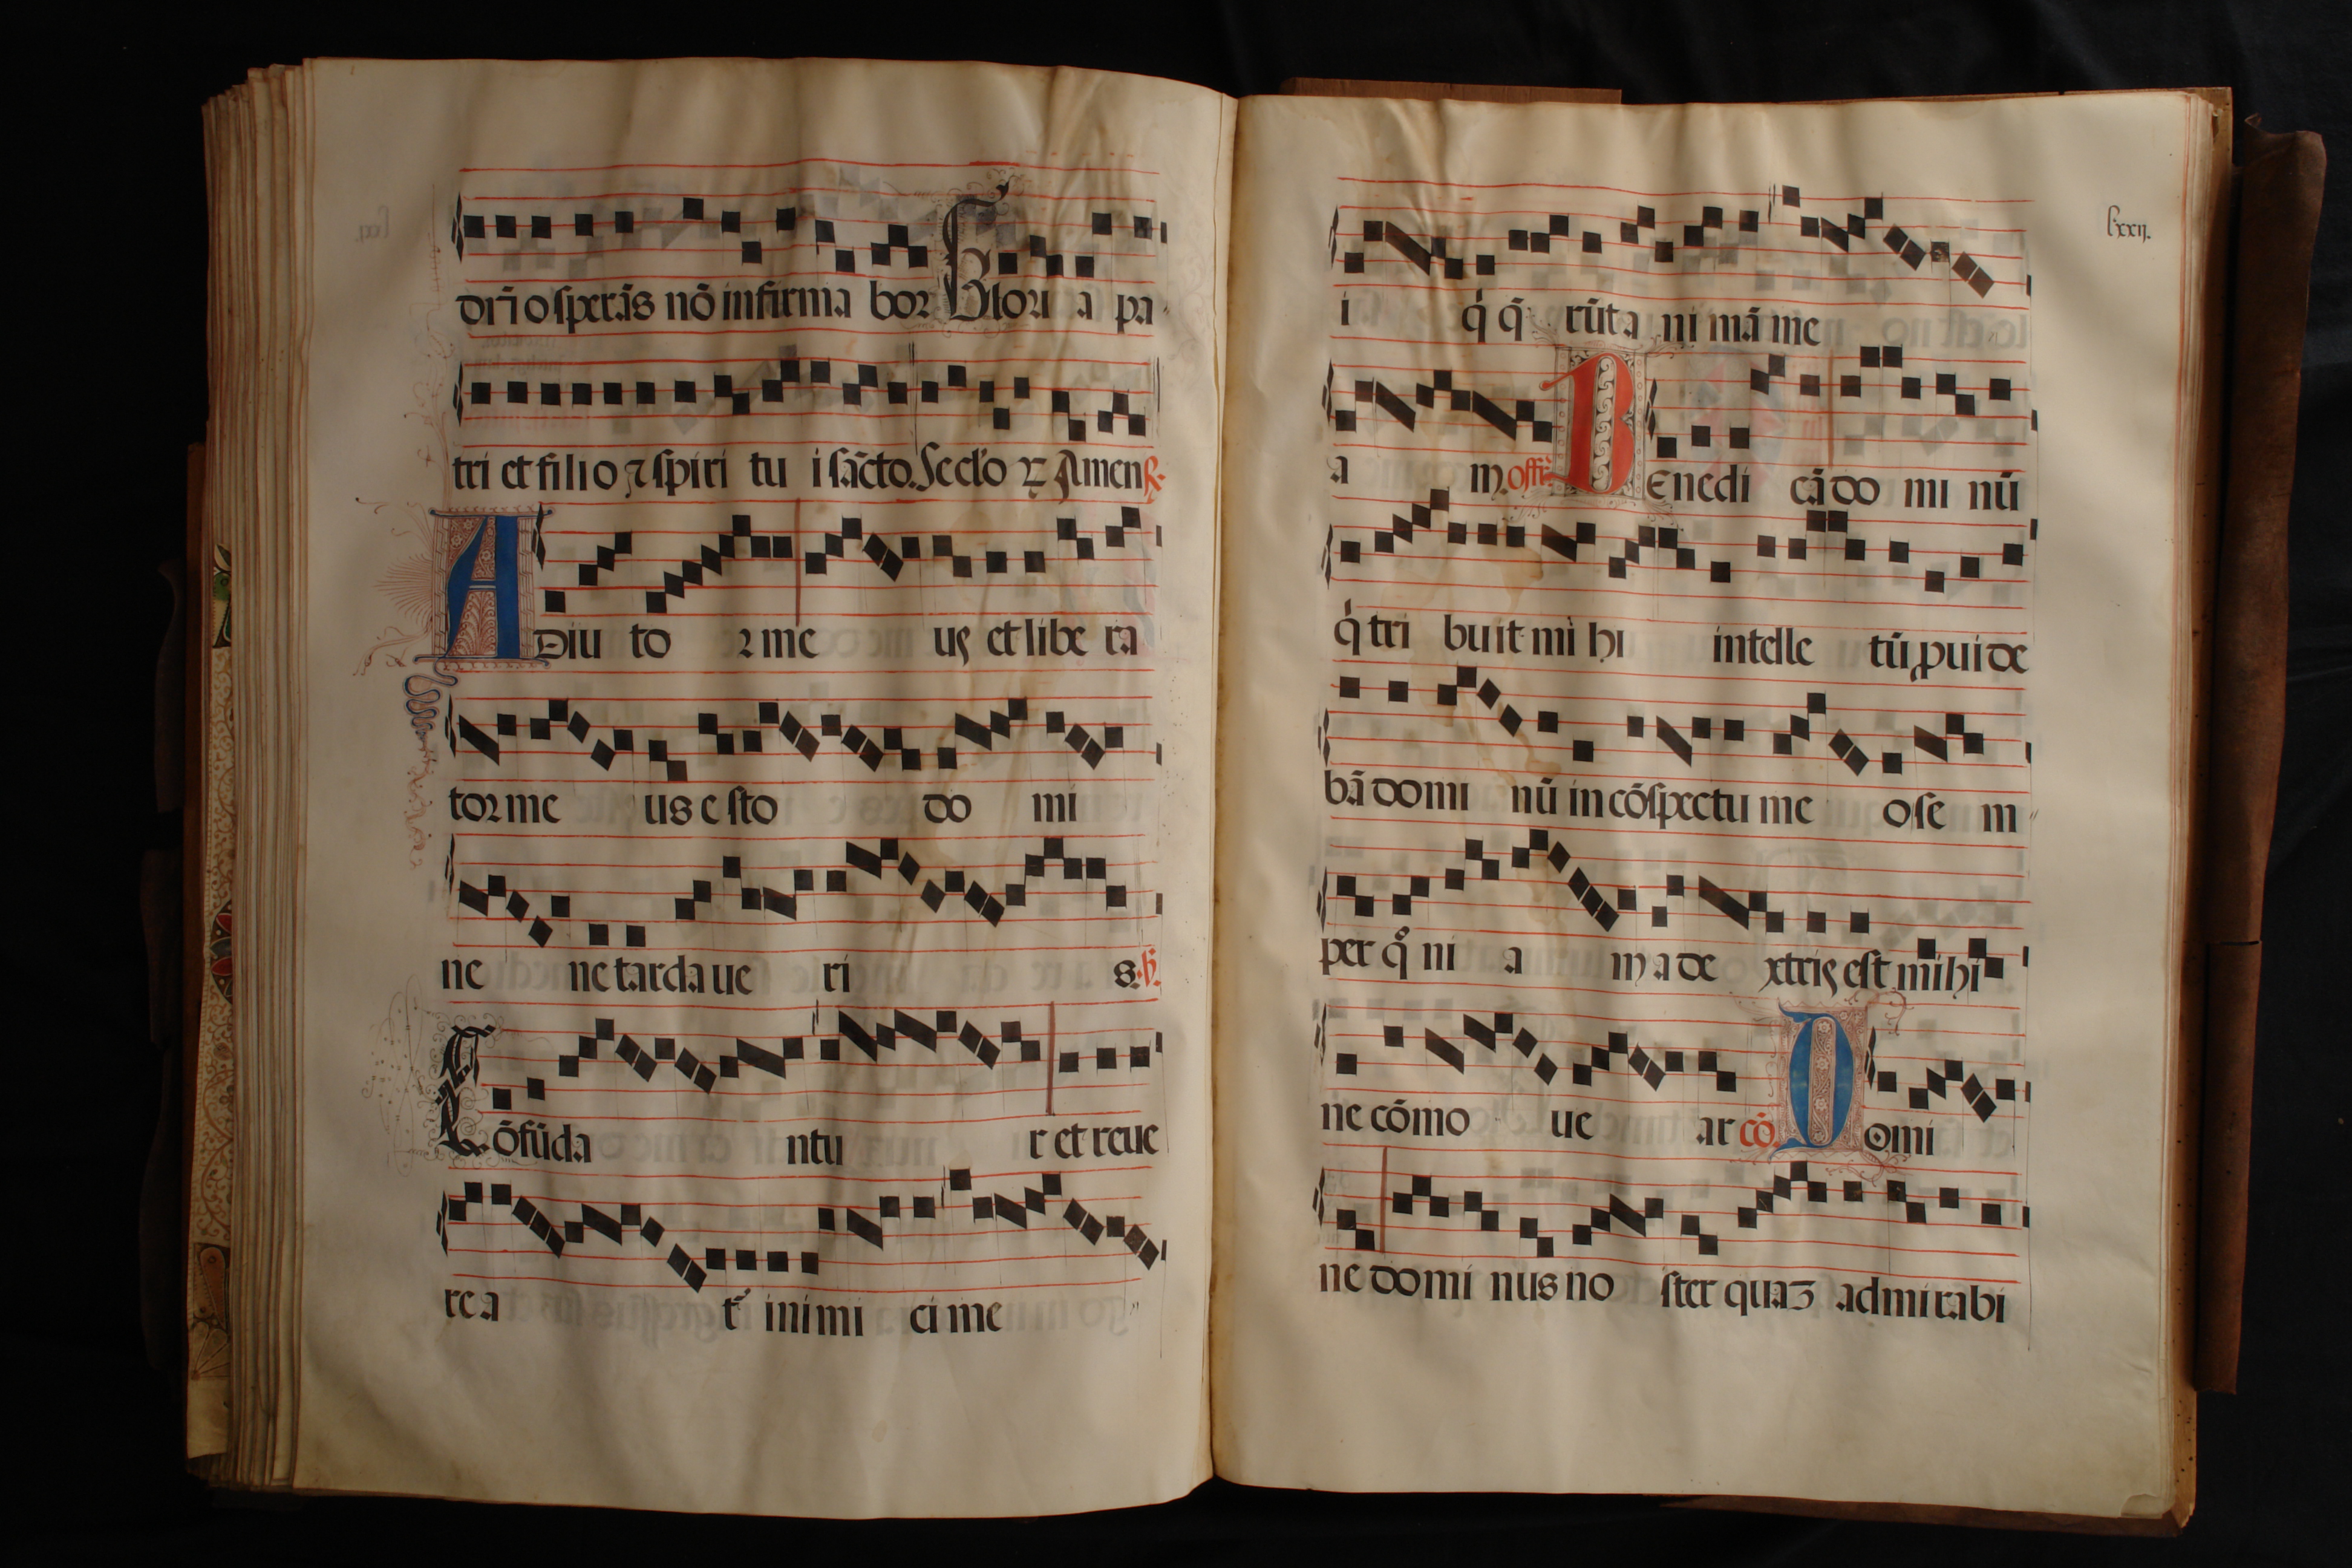 dn̄o sperās nō infirma bor Glori a pa
tri et filio ⁊ spiri tu i sācto. Seclo ꝝ Amen ℟.
A Diu to ꝛ me us et libe ra
tor me us e sto do mi
ne ne tarda ue ri s. ℣.
Cōfūda ntu r et reue
re a t᷑ inimi ci me
lxxij.
i q̇ q̄ rūt a ni mā me
a m. offr̄. Benedi cā do mi nū
q̇ tri bu it mi hi intelle tū ꝓui de
bā domi nū in cōspectu me o se m
per qͦ ni a m a de xtris est mihi
ne cōmo ue ar cō. Domi
ne domi nus no ster quaꝫ admirabi